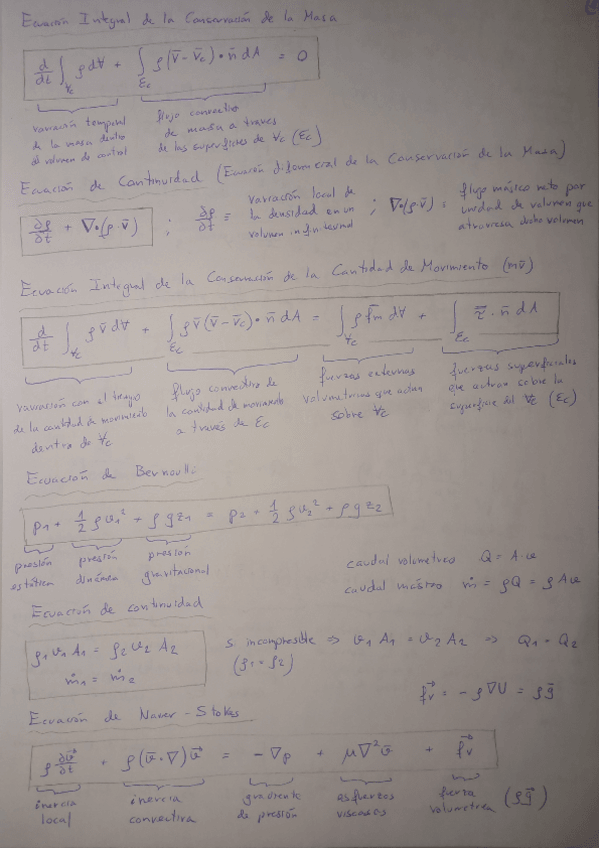 Ecuación Integral de la Conservación de la Masa
d/dt ∫_Vc ρ dV + ∫_Σc ρ(v̄ - v̄c)·n̄ dA = 0
variación temporal de la masa dentro el volumen de control
flujo convectivo de masa a través de las superficies de Vc (Σc)
Ecuación de Continuidad (Ecuación diferencial de la Conservación de la Masa)
∂ρ/∂t + ∇·(ρ·v̄) ; ∂ρ/∂t = variación local de la densidad en un volumen infinitesimal ; ∇·(ρ·v̄) = flujo másico neto por unidad de volumen que atraviesa dicho volumen
Ecuación Integral de la Conservación de la Cantidad de Movimiento (mv̄)
d/dt ∫_Vc ρ v̄ dV + ∫_Σc ρ v̄(v̄ - v̄c)·n̄ dA = ∫_Vc ρ f̄m dV + ∫_Σc τ̄·n̄ dA
variación con el tiempo de la cantidad de movimiento dentro de Vc
flujo convectivo de la cantidad de movimiento a través de Σc
fuerzas externas volumétricas que actúan sobre Vc
fuerzas superficiales que actúan sobre la superficie del Vc (Σc)
Ecuación de Bernoulli
p1 + 1/2 ρv1² + ρ g z1 = p2 + 1/2 ρv2² + ρ g z2
presión estática
presión dinámica
presión gravitacional
caudal volumétrico Q = A·v
caudal másico ṁ = ρQ = ρAv
Ecuación de continuidad
ρ1 v1 A1 = ρ2 v2 A2
ṁ1 = ṁ2
Si incompresible ⇒ v1 A1 = v2 A2 ⇒ Q1 = Q2
(ρ1 = ρ2)
f⃗v = - ρ∇U = ρḡ
Ecuación de Navier-Stokes
ρ ∂v⃗/∂t + ρ(v̄·∇)v⃗ = -∇p + μ∇²v̄ + f⃗v
inercia local
inercia convectiva
gradiente de presión
esfuerzos viscosos
fuerza volumétrica (ρḡ)